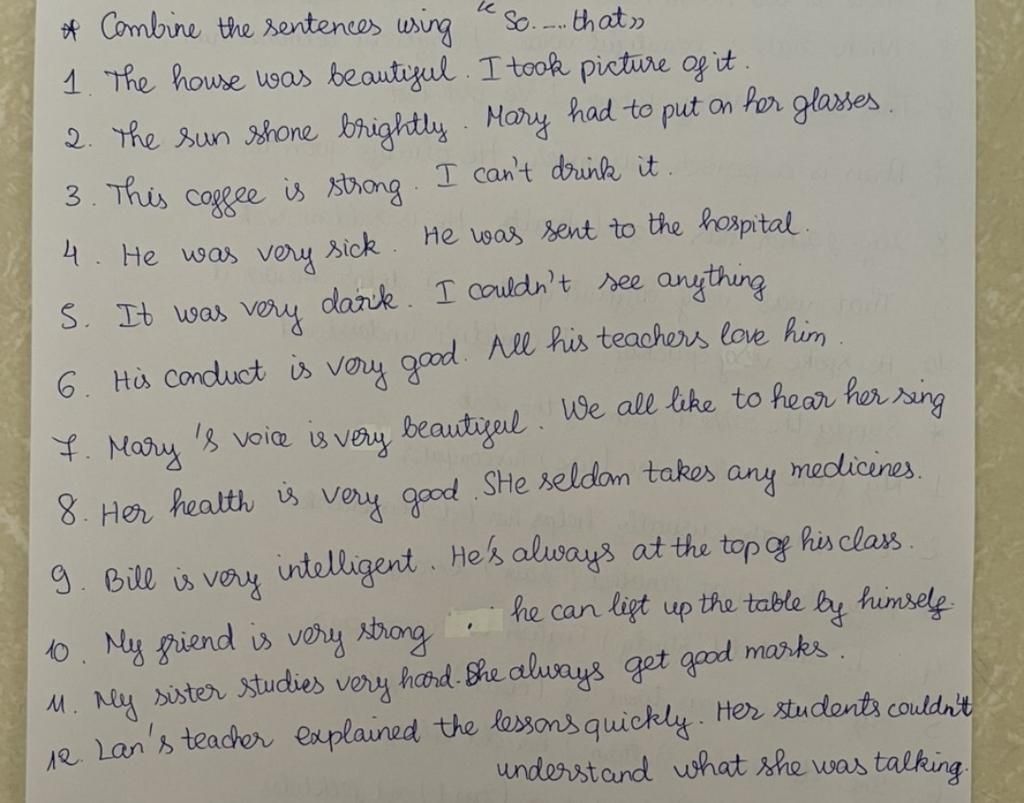 * Combine the sentences using "So.....that"
1. The house was beautiful. I took picture of it.
2. The sun shone brightly. Mary had to put on her glasses.
3. This coffee is strong. I can't drink it.
4. He was very sick. He was sent to the hospital.
5. It was very dark. I couldn't see anything
6. His conduct is very good. All his teachers love him.
7. Mary's voice is very beautiful. We all like to hear her sing
8. Her health is very good. SHe seldom takes any medicines.
9. Bill is very intelligent. He's always at the top of his class.
10. My friend is very strong. he can lift up the table by himself.
11. My sister studies very hard. She always get good marks.
12. Lan's teacher explained the lessons quickly. Her students couldn't
understand what she was talking.